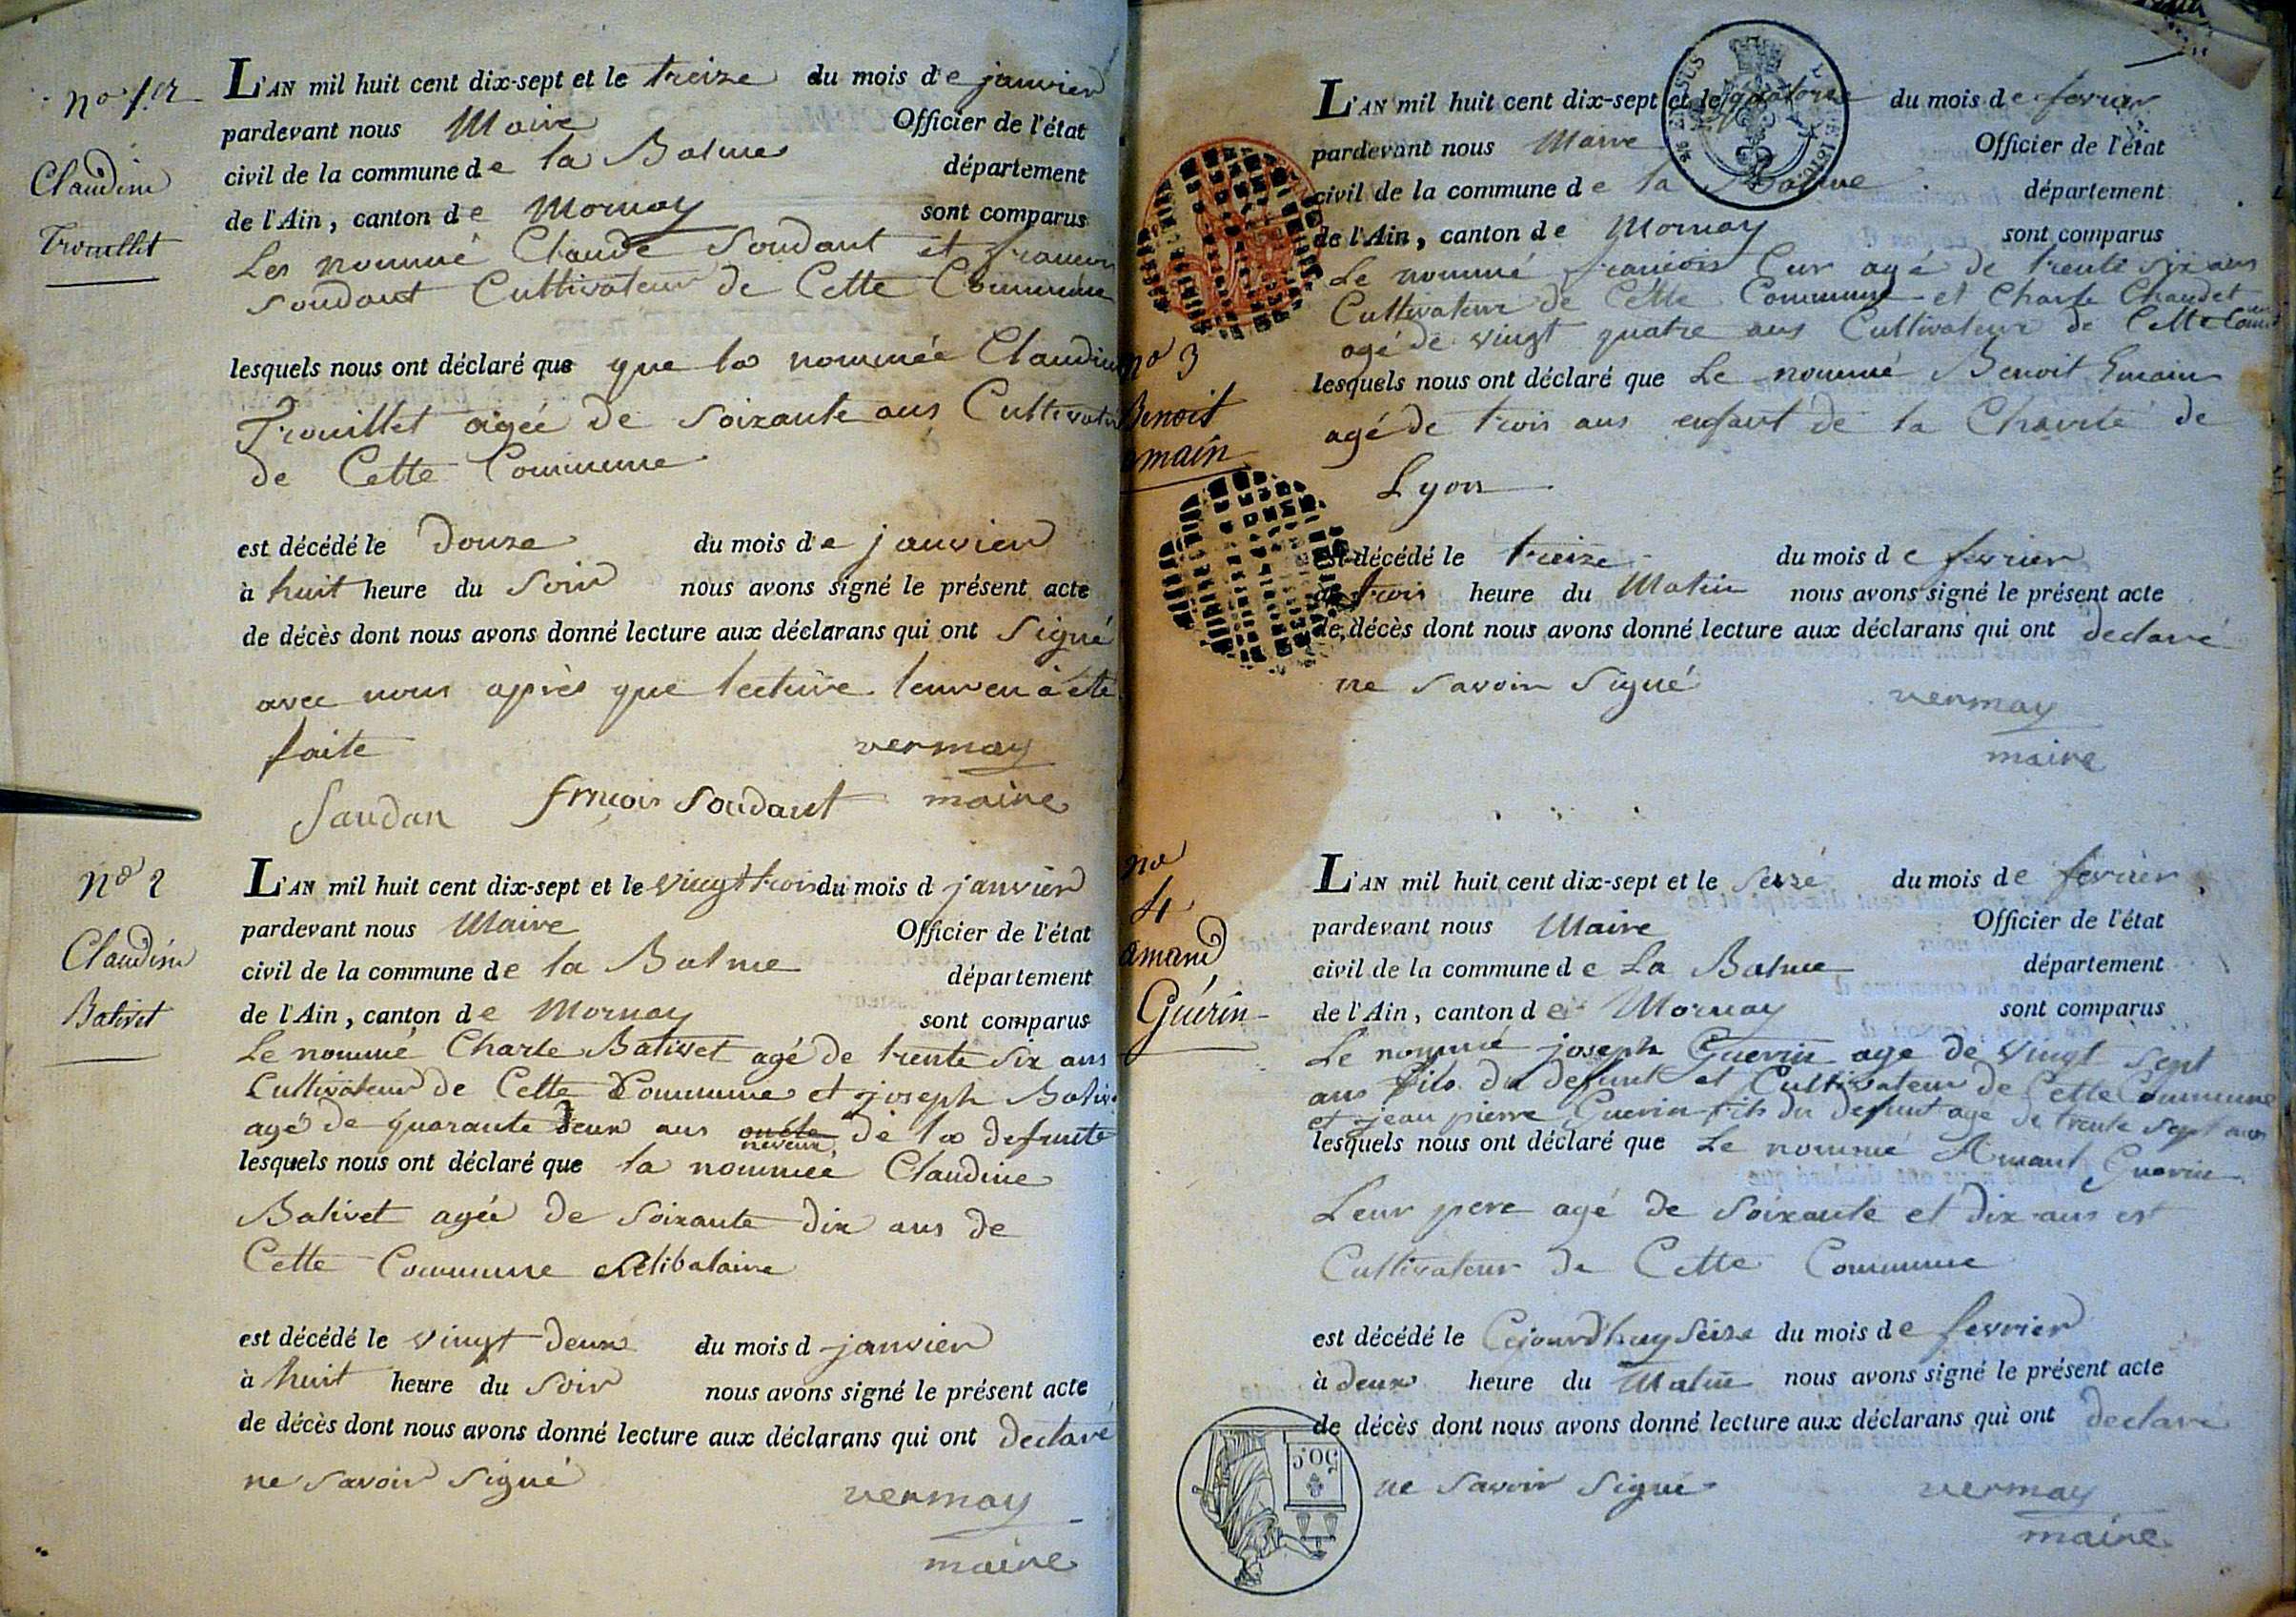 no 1er
Claudine
Trouillet
L'AN mil huit cent dix-sept et le treize du mois de janvier
pardevant nous Maire Officier de l'état
civil de la commune de la Balme département
de l'Ain, canton de Mornay sont comparus
Les nommé Claude Soudant et francois
Soudant Cultivateur de Cette Commune
lesquels nous ont déclaré que que la nommée Claudine
Trouillet agée de Soixante ans Cultivatr
de Cette Commune
est décédé le Douze du mois de janvier
à huit heure du Soir nous avons signé le présent acte
de décès dont nous avons donné lecture aux déclarans qui ont Signé
avec nous après que lecture leur en à été
faite vermay
Saudan frnçois Soudant maire
no 2
Claudine
Balivet
L'AN mil huit cent dix-sept et le vingt trois du mois d janvier
pardevant nous Maire Officier de l'état
civil de la commune de la Balme département
de l'Ain, canton de Mornay sont comparus
Le nommé Charle Balivet agé de trente Six ans
Cultivateur de Cette Commune et joseph Baliv
agé de quarante Deux ans oncle neveux de la defunte
lesquels nous ont déclaré que la nommée Claudine
Balivet agée de Soixante dix ans de
Cette Commune Célibataire
est décédé le vingt deux du mois d janvier
à huit heure du Soir nous avons signé le présent acte
de décès dont nous avons donné lecture aux déclarans qui ont declaré
ne Savoir Signé
vermay
maire
no 3
Benoit
main
L'AN mil huit cent dix-sept et le quatorze du mois de fevrier
pardevant nous Maire Officier de l'état
civil de la commune de la Balme département
de l'Ain, canton de Mornay sont comparus
Le nommé francois agé de trente Six ans
Cultivateur de Cette Commune et Charle Chaudet
agé de vingt quatre ans Cultivateur de Cette Comm
lesquels nous ont déclaré que Le nommé Benoit
agé de trois ans enfant de la Charité de
Lyon
est décédé le treize du mois de fevrier
à trois heure du Matin nous avons signé le présent acte
de décès dont nous avons donné lecture aux déclarans qui ont declaré
ne Savoir Signé
vermay
maire
no
4
amand
Guérin
L'AN mil huit cent dix-sept et le Seize du mois de fevrier
pardevant nous Maire Officier de l'état
civil de la commune de La Balme département
de l'Ain, canton de Mornay sont comparus
Le nommé joseph Guerin age de vingt Sept
ans fils du defunt et Cultivateur de Cette Commune
et jean pierre Guerin fils du defunt age de trente Sept ans
lesquels nous ont déclaré que Le nommé Amant Guerin
Leur pere agé de Soixante et dix ans est
Cultivateur de Cette Commune
est décédé le Cejourd'huy Seize du mois de fevrier
à deux heure du Matin nous avons signé le présent acte
de décès dont nous avons donné lecture aux déclarans qui ont declaré
ne Savoir Signé
vermay
maire
50c